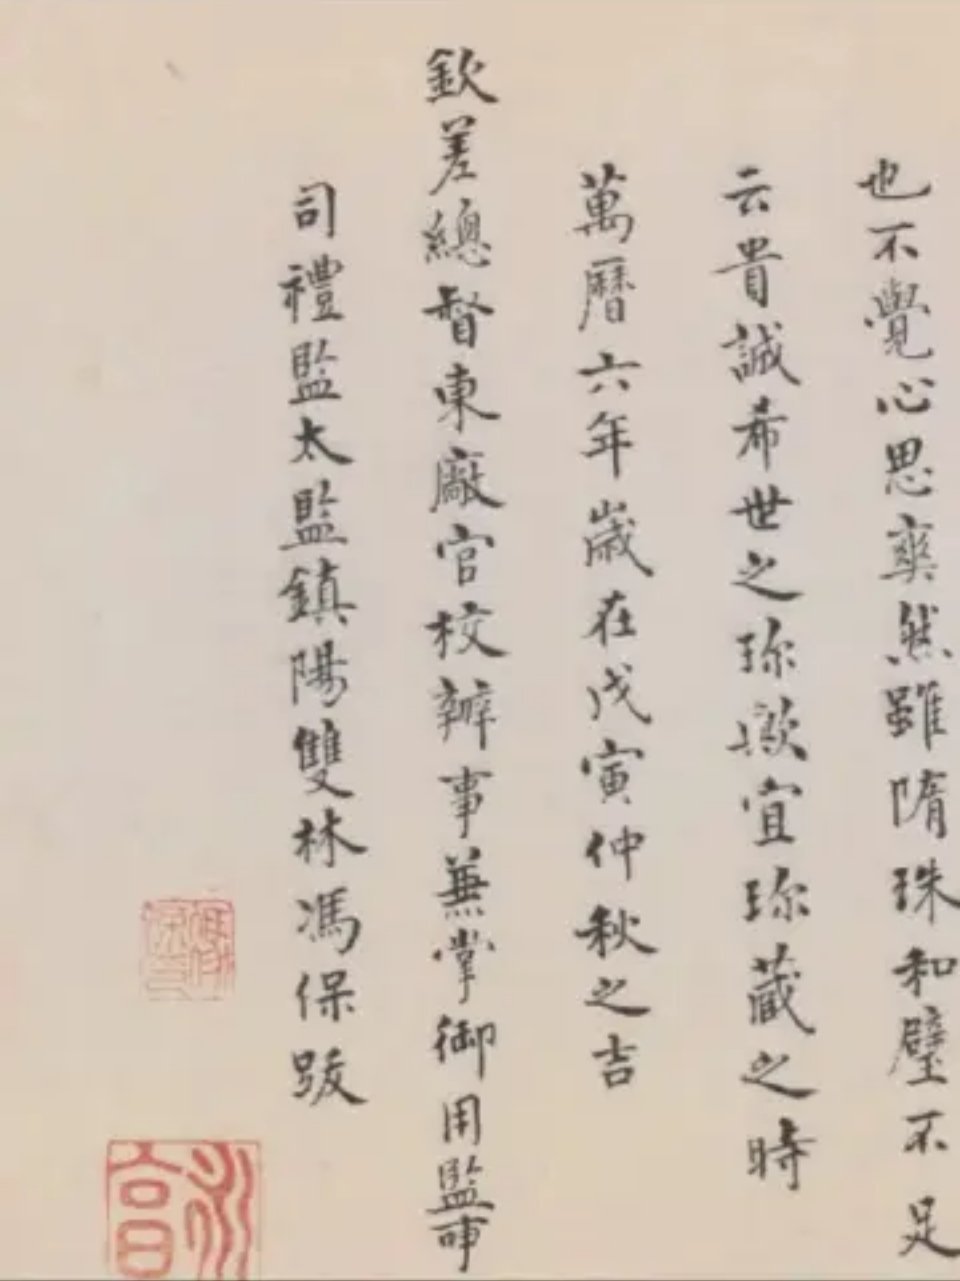 也不覺心思爽然雖隋珠和璧不足
云貴誠希世之珎歟宜珎藏之時
萬曆六年歲在戊寅仲秋之吉
欽差總督東廠官校辦事兼掌御用監事
司禮監太監鎮陽雙林馮保跋